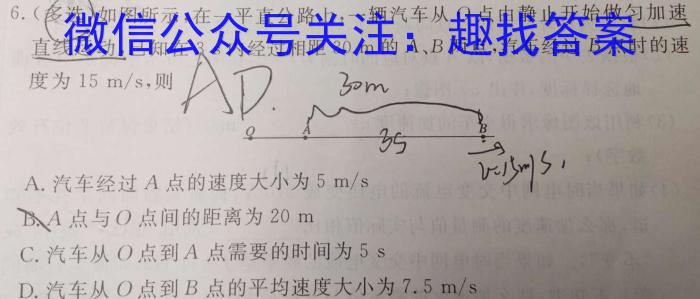 6.(多选)如图所示,在一平直公路上,一辆汽车从O点由静止开始做匀加速
直线运动,已知在3 s内经过相距30 m的A、B
微信公众号关注：趣找答案
时的速
度为 15 m/s,则
AD.
30m
O
A
B
3s
v=15m/s,
A. 汽车经过 A 点的速度大小为 5 m/s
B. A 点与 O 点间的距离为 20 m
C. 汽车从 O 点到 A 点需要的时间为 5 s
D. 汽车从 O 点到 B 点的平均速度大小为 7.5 m/s